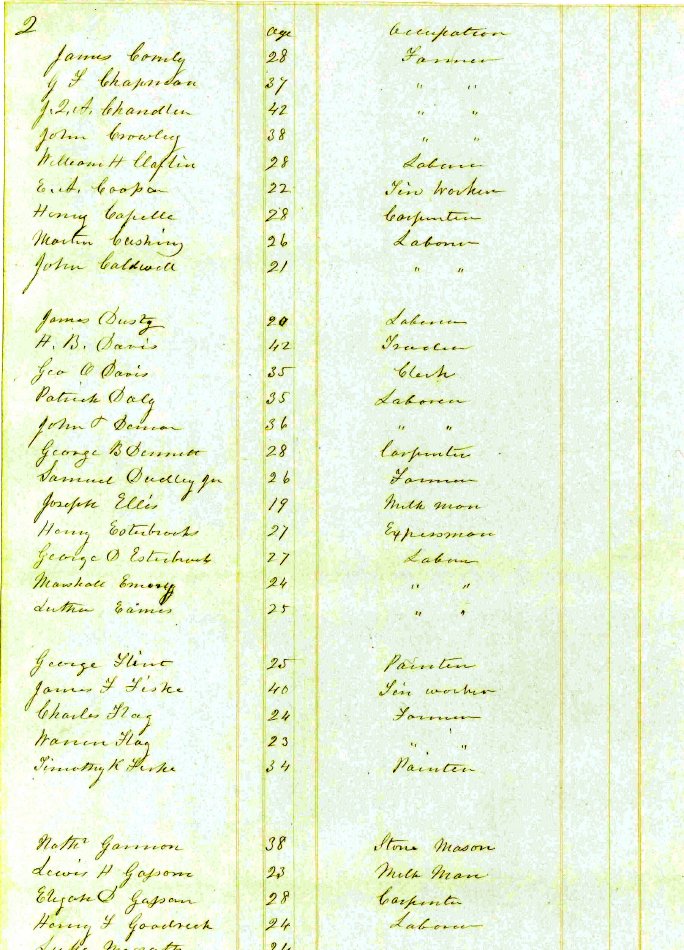 2 Age Occupation
James Comly 28 Farmer
G F Chapman 37 " "
J. Q. A. Chandler 42 " "
John Crowley 38 " "
William H Claflin 28 Laborer
E. A. Cooper 22 Tin Worker
Henry Capelle 28 Carpenter
Martin Cushing 26 Laborer
John Caldwell 21 " "
James Dusty 20 Laborer
H. B. Davis 42 Trader
Geo O Davis 35 Clerk
Patrick Daly 35 Laborer
John 36 " "
George B Dennett 28 Carpenter
Samuel Dudley Jr 26 Farmer
Joseph Ellis 19 Milk man
Henry Esterbrooks 27 Expessman
George D Esterbrook 27 Labour
Marshall Emery 24 " "
Luther Eames 25 " "
George Flint 25 Painter
James F Fiske 40 Tin worker
Charles Flag 24 Farmer
Warren Flag 23 " "
Timothy K Fiske 34 Painter
Nathl Gannon 38 Stone Mason
Lewis H 23 Milk Man
Elijah D 28 Carpenter
Henry F Goodrich 24 Laborer
24